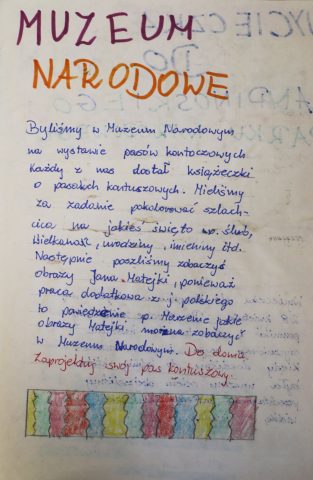 MUZEUM
NARODOWE
Byliśmy w Muzeum Narodowym
na wystawie pasów kontuczowych
Każdy z nas dostał książeczki
o pasach kontuszowych. Mieliśmy
za zadanie pokolorować szlach-
cica na jakieś święto np. ślub,
Wielkanoc, urodziny, imieniny itd.
Następnie poszliśmy zobaczyć
obrazy Jana Matejki, ponieważ
praca dodatkowa z j. polskiego
to p. Marzenie jakie
obrazy Matejki można zobaczyć
w Muzeum Narodowym. Do domu
zaprojektuj swój pas kontuszowy.